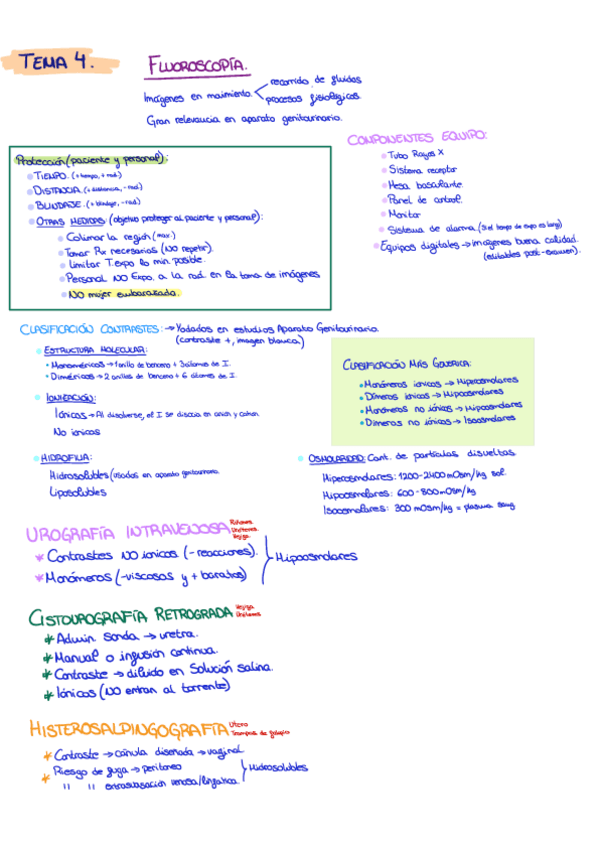 TEMA 4.
FLUOROSCOPÍA.
Imágenes en movimiento
recorrido de fluidos
procesos fisiológicos.
Gran relevancia en aparato genitourinario.
Protección (paciente y personal):
TIEMPO. (+ tiempo, + rad.)
DISTANCIA. (+ distancia, - rad.)
BLINDAJE. (+ blindaje, - rad.)
OTRAS MEDIDAS (objetivo proteger al paciente y personal):
Colimar la región (max.)
Tomar Rx necesarias (NO repetir).
Limitar T.expo lo mín posible.
Personal NO Expo. a la rad. en la toma de imágenes
NO mujer embarazada.
COMPONENTES EQUIPO:
Tubo Rayos X
Sistema receptor
Mesa basculante.
Panel de control.
Monitor
Sistema de alarma. (Si el tiempo de expo es largo)
Equipos digitales → imágenes buena calidad.
(editables post-examen).
CLASIFICACIÓN CONTRASTES: → Yodados en estudios Aparato Genitourinario.
(contraste +, imagen blanca)
ESTRUCTURA MOLECULAR:
Monoméricos → 1 anillo de benceno + 3 átomos de I.
Diméricos → 2 anillos de benceno + 6 átomos de I.
IONIZACIÓN:
Iónicos → Al disolverse, el I se disocia en anión y catión
No iónicos
HIDROFILIA:
Hidrosolubles (usados en aparato genitourinario.
Liposolubles
CLASIFICACIÓN MÁS GENERICA:
Monómeros iónicos → Hiperosmolares
Dímeros iónicos → Hipoosmolares
Monómeros no iónicos → Hipoosmolares
Dímeros no iónicos → Isoosmolares
OSMOLARIDAD: Cant. de partículas disueltas
Hiperosmolares: 1200-2400 mOsm/Kg sol.
Hipoosmolares: 600-800 mOsm/Kg
Isoosmolares: 300 mOsm/Kg = plasma sang
UROGRAFÍA INTRAVENOSA
Riñones
Uréteres
Vejiga
Contrastes NO iónicos (- reacciones).
Monómeros (- viscosos y + baratos)
Hipoosmolares
CISTOUROGRAFÍA RETROGRADA
Vejiga
Uréteres
Admin Sonda → uretra.
Manual o infusión continua.
Contraste → diluido en Solución salina.
Iónicos (NO entran al torrente)
HISTEROSALPINGOGRAFÍA
Útero
Trompas de falopio
Contraste → cánula diseñada → vaginal
Riesgo de fuga → peritoneo
" " extravasación venosa/linfática.
Hidrosolubles